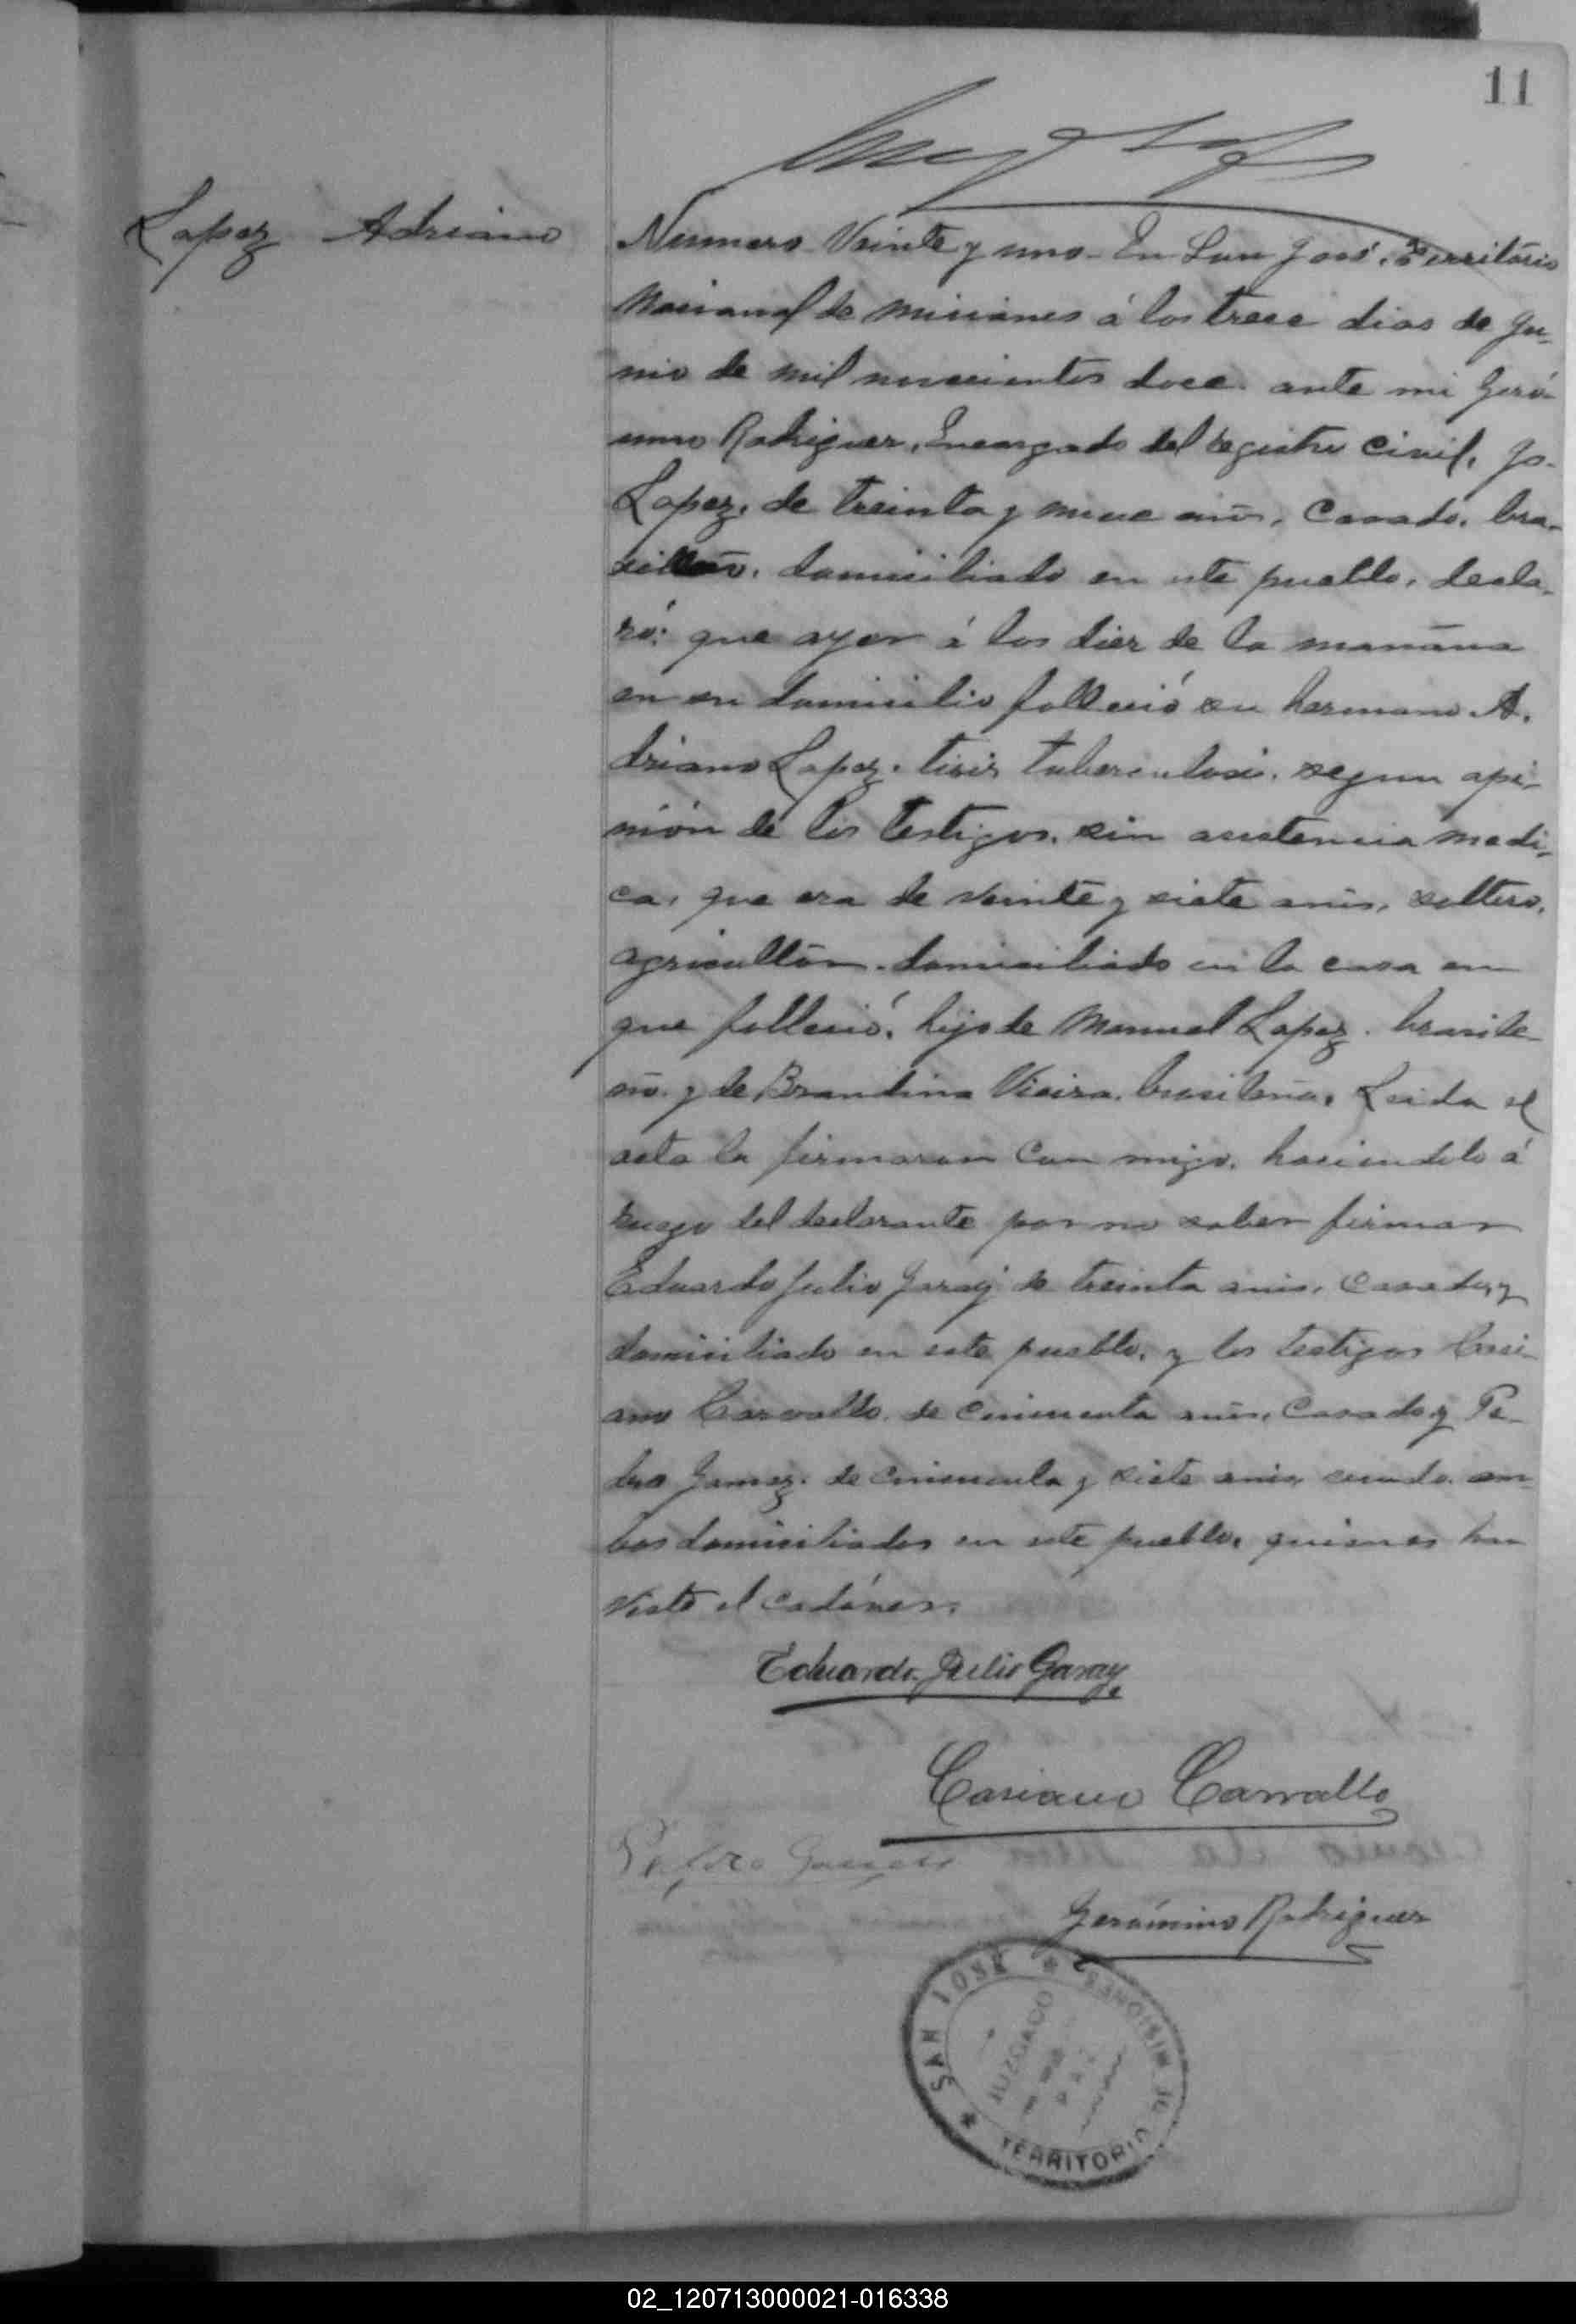 11
Lopez Adriano
Numero Veinte y uno. En San José, Territorio
Nacional de Misiones á los trece dias de Ju-
nio de mil novecientos doce. ante mi Geró-
nimo Rodriguez, Encargado del Registro Civil, Jo-
Lopez, de treinta y nueve años, Casado, bra-
sileño, domiciliado en este pueblo, decla-
ró: que ayer á las diez de la mañana
en su domicilio falleció su hermano A-
driano Lopez. tisis tuberculosis, segun opi-
nión de los testigos, sin asistencia medi-
ca, que era de veinte y siete años, soltero,
agricultor, domiciliado en la casa en
que falleció, hijo de Manuel Lopez. brasile-
ño. y de Brandina Vieira, brasileña. Leida el
acta la firmaron con migo, haciendolo á
ruego del declarante por no saber firmar
Eduardo Julio Garay de treinta años, Casado, y
domiciliado en este pueblo, y los testigos Casi-
ano Carvallo, de cincuenta años, Casado y Pe-
dro Gomez. de cincuenta y siete años, viudo, am-
bos domiciliados en este pueblo, quienes han
visto el cadáver.
Eduardo Julio Garay
Casiano Carvallo
Pedro
Gerónimo Rodriguez
SAN JOSE * TERRITORIO DE MISIONES *
JUZGADO
DE
PAZ
02_120713000021-016338